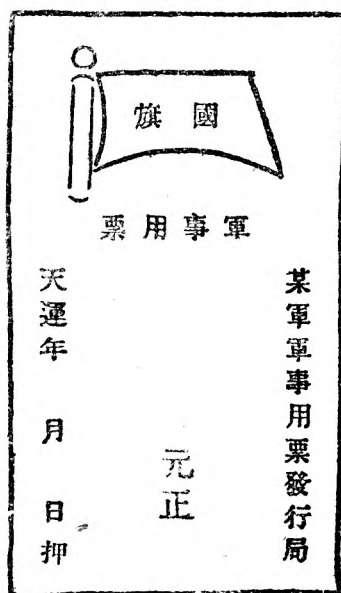 國旗
軍事用票
某軍軍事用票發行局
元正
天運年 月 日押